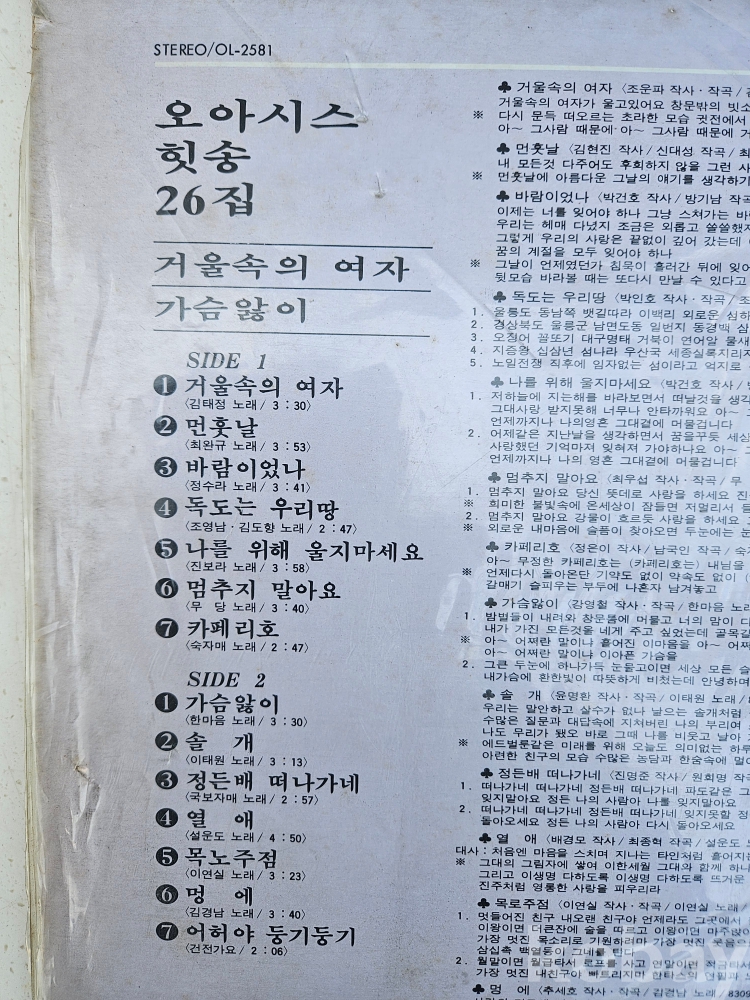 STEREO/OL-2581
오아시스
힛송
26집
거울속의 여자
가슴앓이
SIDE 1
❶ 거울속의 여자
〈김태정 노래/ 3 : 30〉
❷ 먼훗날
〈최완규 노래/ 3 : 53〉
❸ 바람이었나
〈정수라 노래/ 3 : 41〉
❹ 독도는 우리땅
〈조영남·김도향 노래/ 2 : 47〉
❺ 나를 위해 울지마세요
〈진보라 노래/ 3 : 58〉
❻ 멈추지 말아요
〈무 당 노래/ 3 : 40〉
❼ 카페리호
〈숙자매 노래/ 2 : 47〉
SIDE 2
❶ 가슴앓이
〈한마음 노래/ 3 : 30〉
❷ 솔 개
〈이태원 노래/ 3 : 13〉
❸ 정든배 떠나가네
〈국보자매 노래/ 2 : 57〉
❹ 열 애
〈설운도 노래/ 4 : 50〉
❺ 목노주점
〈이연실 노래/ 3 : 23〉
❻ 멍 에
〈김경남 노래/ 3 : 40〉
❼ 어허야 둥기둥기
〈건전가요/ 2 : 06〉
♣ 거울속의 여자 〈조운파 작사·작곡/
거울속의 여자가 울고있어요 창문밖의
※ 다시 문득 떠오르는 초라한 모습 귓전에서
아～ 그사람 때문에 아～ 그사람 때문에
♣ 먼훗날 〈김현진 작사/신대성 작곡/
내 모든것 다주어도 후회하지 않을 그런
※ 먼훗날에 아름다운 그날의 얘기를 생각하기
♣ 바람이었나 〈박건호 작사/방기남 작곡
이제는 너를 잊어야 하나 그냥 스쳐가는
우리는 헤매 다녔지 조금은 외롭고 쓸쓸했지
그렇게 우리의 사랑은 끝없이 깊어 갔는데
꿈의 계절을 모두 잊어야 하나
※ 그날이 언제였던가 침묵이 흘러간 뒤에
뒷모습 바라볼 때는 또다시 만날 수 있다고
♣ 독도는 우리땅 〈박인호 작사·작곡/
1. 울릉도 동남쪽 뱃길따라 이백리 외로운 섬
2. 경상북도 울릉군 남면도동 일번지 동경백
3. 오징어 꼴뚜기 대구명태 거북이 연어알 물새
4. 지증왕 십삼년 섬나라 우산국 세종실록지리지
5. 노일전쟁 직후에 임자없는 섬이라고 억지로
♣ 나를 위해 울지마세요 〈박건호 작사/
1. 저하늘에 지는해를 바라보면서 떠날것을
그대사랑 받지못해 너무나 안타까워요 아～
언제까지나 나의영혼 그대곁에 머물겁니다
2. 어제같은 지난날을 생각하면서 꿈을꾸듯
사랑했던 기억마져 잊혀져 가야하나요 아～
언제까지나 나의 영혼 그대곁에 머물겁니다
♣ 멈추지 말아요 〈최우섭 작사·작곡/ 무
1. 멈추지 말아요 당신 뜻데로 사랑을 하세요
※ 희미한 불빛속에 온세상이 잠들면 저멀리서
2. 멈추지 말아요 강물이 흐르듯 사랑을 하세요
※ 외로운 내마음에 슬픔이 찾아오면 두눈에는
♣ 카페리호 〈정은이 작사/남국인 작곡/
아～ 무정한 카페리호는 (카페리호는) 내님을
※ 언제다시 돌아온단 기약도 없이 약속도 없이
갈매기 슬피우는 부두에 나혼자 남겨놓고
♣ 가슴앓이 〈강영철 작사·작곡/한마음
1. 밤별들이 내려와 창문틈에 머물고 너의 맘이
내가 가진 모든것을 네게 주고 싶었는데
※ 아～ 어쩌란 말이냐 흩어진 이마음을 아～
아～ 어쩌란 말이냐 이아픈 가슴을
2. 그큰 두눈에 하나가득 눈물고이면 세상 모든
내가슴에 환한빛이 따뜻하게 비쳤는데 안녕하며
♣ 솔 개 〈윤명환 작사·작곡/이태원 노래/
우리는 말안하고 살수가 없나 날으는 솔개처럼
수많은 질문과 대답속에 지쳐버린 나의 부리여
나도 우리가 됐오 바로 그때 나를 비웃고
※ 에드벌룬같은 미래를 위해 오늘도 의미없는
아련한 친구의 모습 수많은 농담과 한숨속에
♣ 정든배 떠나가네 〈진명준 작사/원희명 작곡
1. 떠나가네 떠나가네 정든배 떠나가네 파도같은
잊지말아요 정든 나의 사람아 나를 잊지말아요
2. 떠나가네 떠나가네 정든배 떠나가네 잊지못할
돌아오세요 정든 나의 사람아 다시 돌아오세요
♣ 열 애 〈배경모 작사/최종혁 작곡/설운도
대사 : 처음엔 마음을 스치며 지나는 타인처럼
※ 그대의 그림자에 쌓여 이한세월 그대와 함께
그리고 이생명 다하도록 이생명 다하도록 뜨거운
진주처럼 영롱한 사랑을 피우리라
♣ 목로주점 〈이연실 작사·작곡/이연실 노래/
1. 멋들어진 친구 내오랜 친구야 언제라도 그곳에서
이왕이면 더큰잔에 술을 따르고 이왕이면
가장 멋진 목소리로 기원하려마 가장 멋진
삼십촉 백열등이 그네를 탄다
2. 월말이면 월급타서 로프를 사고 연말이면
가장 멋진 내친구야 빠트리지마
♣ 멍 에 〈추세호 작사·작곡/김경남 노래/